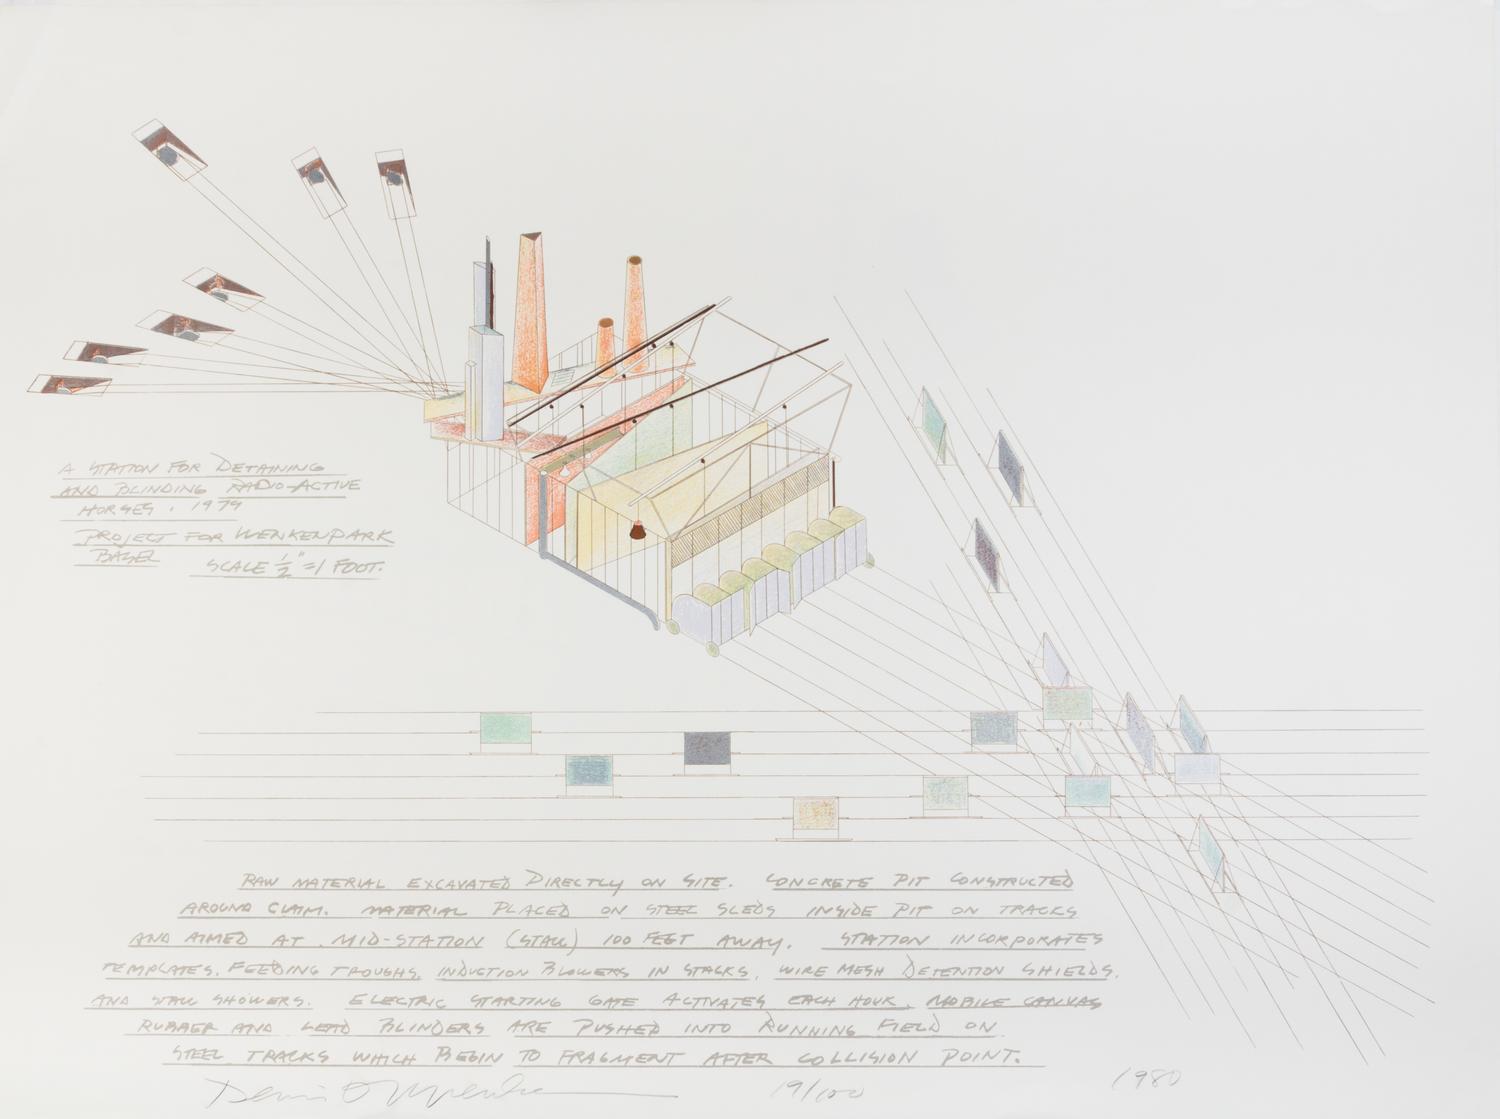 A STATION FOR DETAINING
AND BLINDING RADIO-ACTIVE
HORSES. 1979
PROJECT FOR WENKENPARK
BASEL SCALE ½"=1 FOOT.
RAW MATERIAL EXCAVATED DIRECTLY ON SITE. CONCRETE PIT CONSTRUCTED
AROUND CLAIM. MATERIAL PLACED ON STEEL SLEDS INSIDE PIT ON TRACKS
AND AIMED AT MID-STATION (STALL) 100 FEET AWAY. STATION INCORPORATES
TEMPLATES, FEEDING TROUGHS, INDUCTION BLOWERS IN STACKS, WIRE MESH DETENTION SHIELDS,
AND STALL SHOWERS. ELECTRIC STARTING GATE ACTIVATES EACH HOUR. MOBILE CANVAS
RUBBER AND LEAD BLINDERS ARE PUSHED INTO RUNNING FIELD ON
STEEL TRACKS WHICH BEGIN TO FRAGMENT AFTER COLLISION POINT.
Dennis Oppenheim 19/100 1980